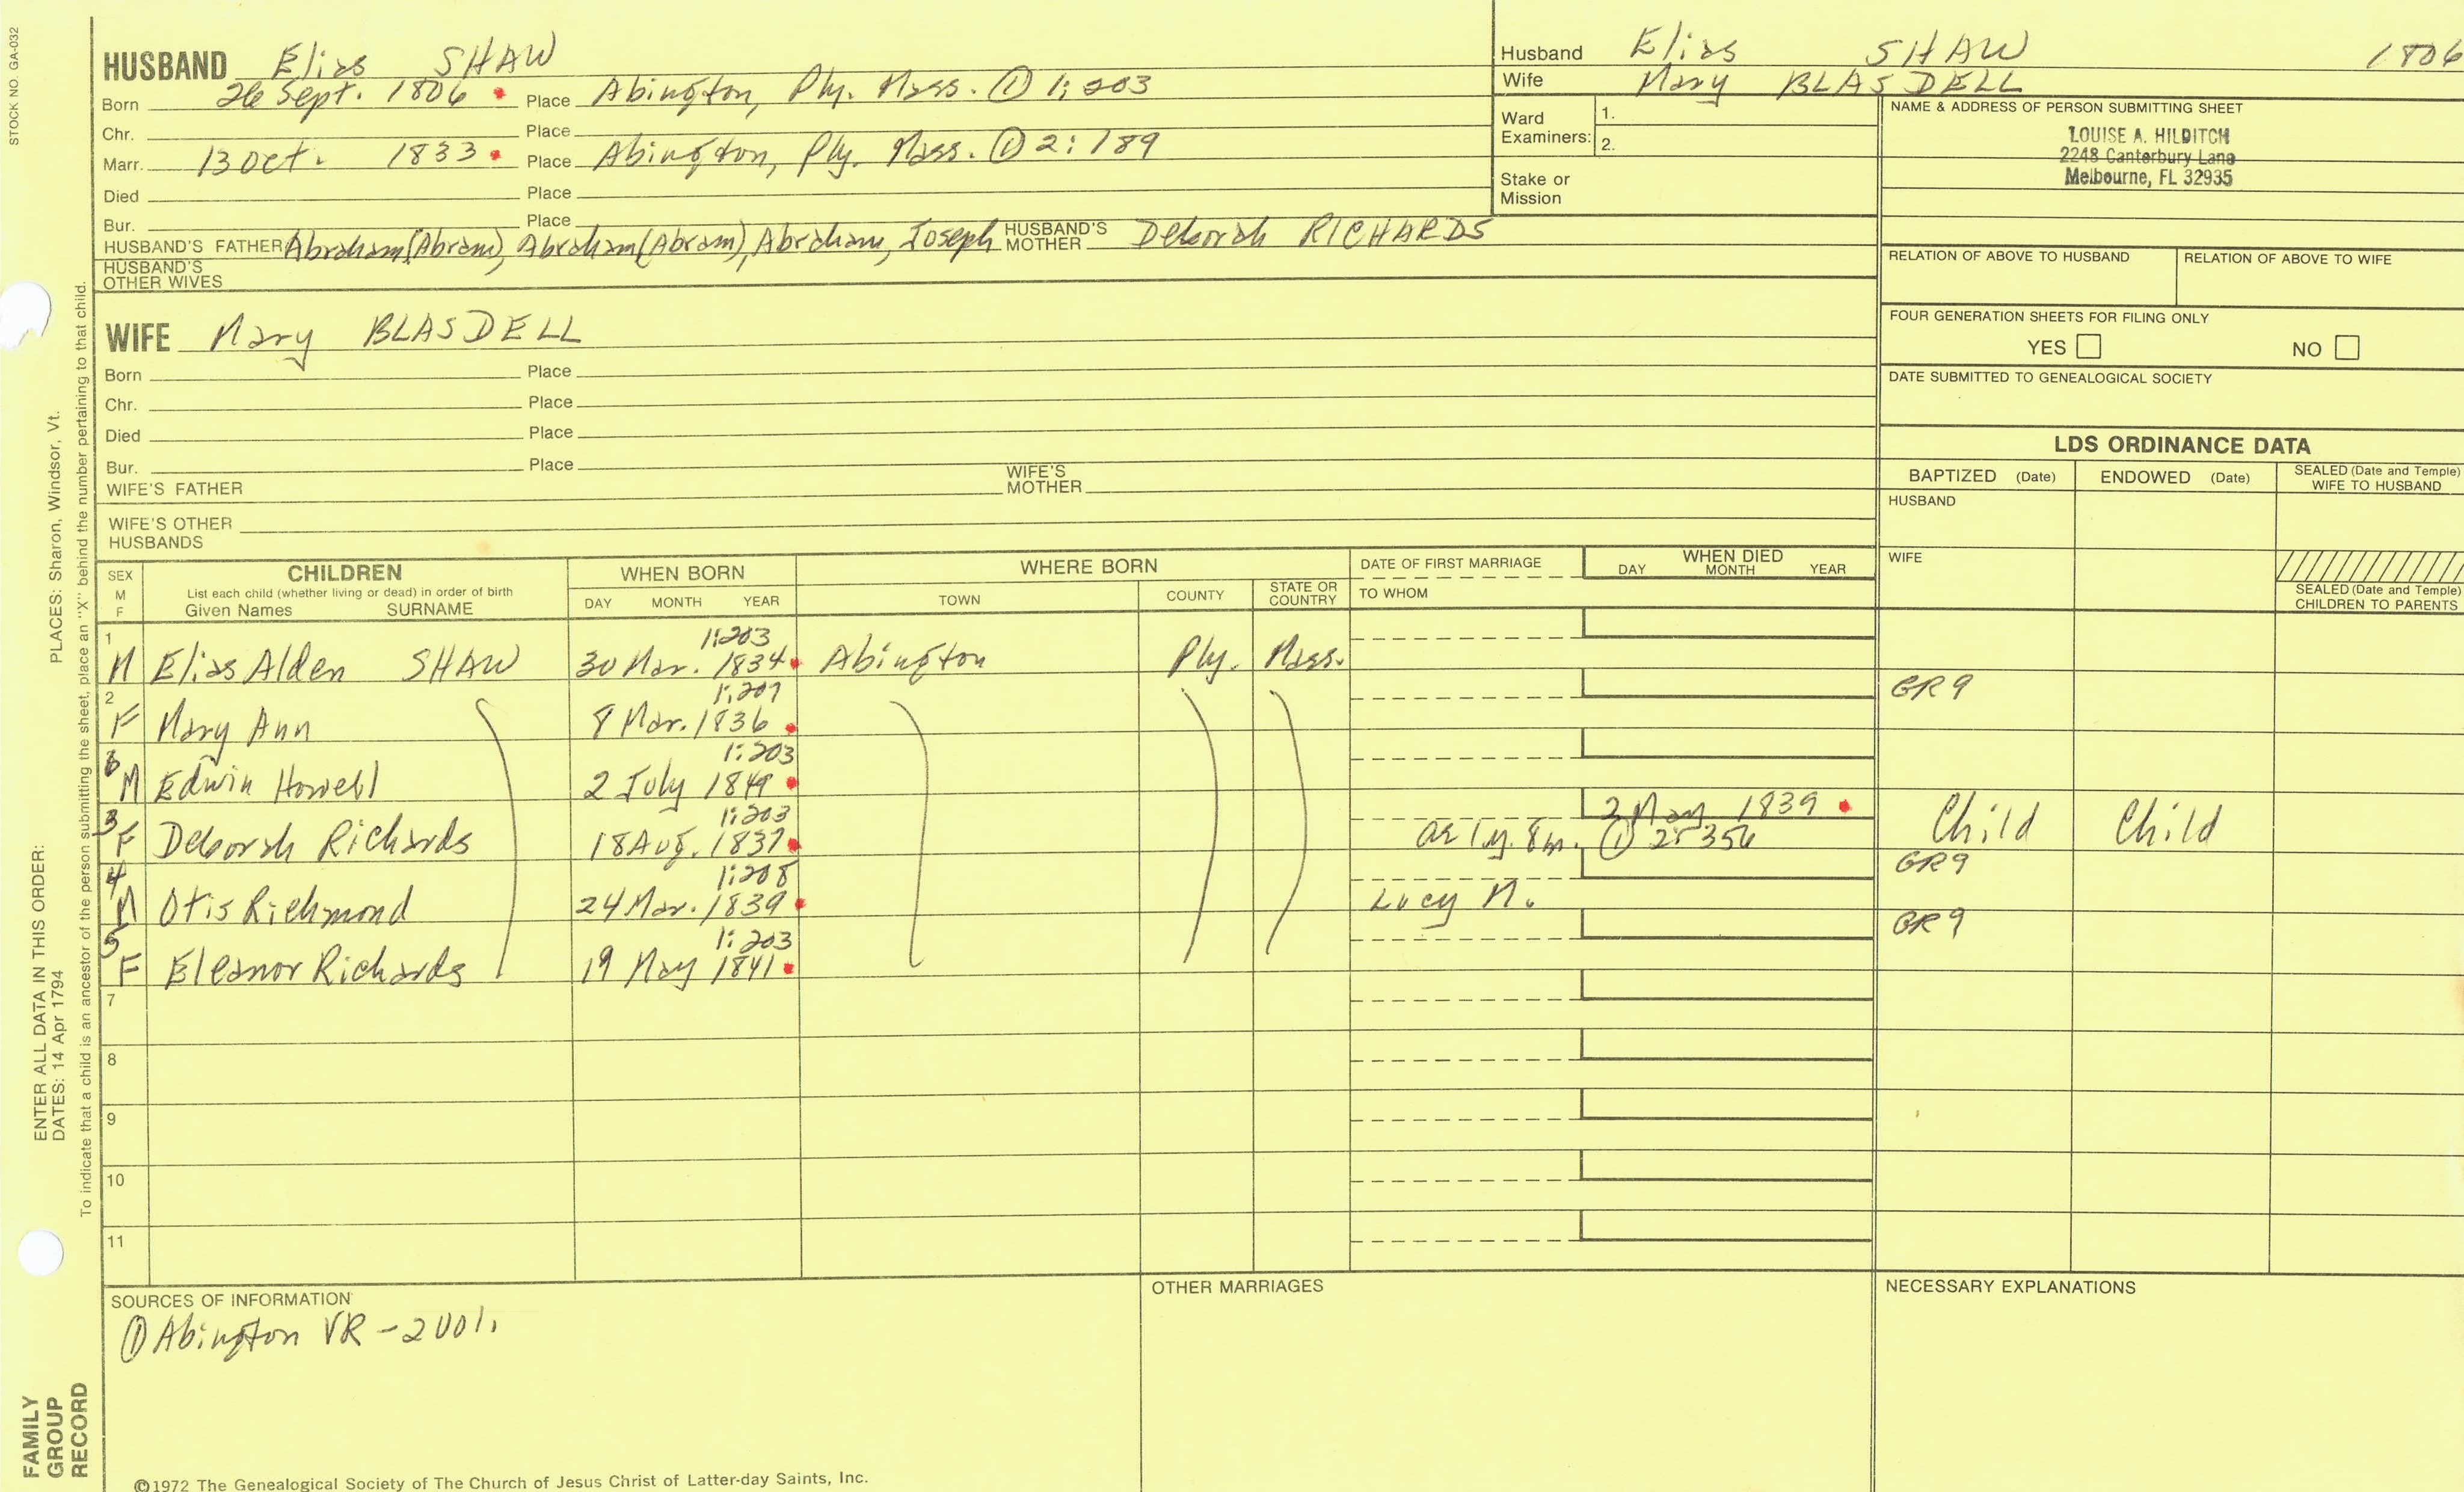 STOCK NO. GA-032
HUSBAND Elias SHAW
Born 26 Sept. 1806 Place Abington, Ply. Mass. ① 1:203
Chr. Place
Marr. 13 Oct. 1833 Place Abington, Ply. Mass. ① 2:189
Died Place
Bur. Place
HUSBAND'S FATHER Abraham(Abram), Abraham(Abram), Abraham, Joseph HUSBAND'S MOTHER Deborah RICHARDS
HUSBAND'S OTHER WIVES
Husband Elias SHAW 1806
Wife Mary BLASDELL
Ward Examiners: 1.
2.
Stake or Mission
NAME & ADDRESS OF PERSON SUBMITTING SHEET
LOUISE A. HILDITCH
2248 Canterbury Lane
Melbourne, FL 32935
RELATION OF ABOVE TO HUSBAND RELATION OF ABOVE TO WIFE
FOUR GENERATION SHEETS FOR FILING ONLY
YES NO
DATE SUBMITTED TO GENEALOGICAL SOCIETY
WIFE Mary BLASDELL
Born Place
Chr. Place
Died Place
Bur. Place
WIFE'S FATHER WIFE'S MOTHER
WIFE'S OTHER HUSBANDS
LDS ORDINANCE DATA
BAPTIZED (Date) ENDOWED (Date) SEALED (Date and Temple) WIFE TO HUSBAND
HUSBAND
WIFE
SEALED (Date and Temple) CHILDREN TO PARENTS
SEX M F
CHILDREN
List each child (whether living or dead) in order of birth
Given Names SURNAME
WHEN BORN
DAY MONTH YEAR
WHERE BORN
TOWN COUNTY STATE OR COUNTRY
DATE OF FIRST MARRIAGE
TO WHOM
WHEN DIED
DAY MONTH YEAR
1:203
1 M Elias Alden SHAW 30 Mar. 1834 Abington Ply. Mass.
1:207
2 F Mary Ann 8 Mar. 1836 GR9
1:203
6 M Edwin Howell 2 July 1849
1:203 2 May 1839
3 F Deborah Richards 18 Aug. 1837 ae 1y. 8m. ① 2:356 Child Child
1:208
4 M Otis Richmond 24 Mar. 1839 Lucy N. GR9
1:203
5 F Eleanor Richards 19 May 1841 GR9
7
8
9
10
11
SOURCES OF INFORMATION
① Abington VR - 2 vol.
OTHER MARRIAGES
NECESSARY EXPLANATIONS
©1972 The Genealogical Society of The Church of Jesus Christ of Latter-day Saints, Inc.
ENTER ALL DATA IN THIS ORDER: PLACES: Sharon, Windsor, Vt.
DATES: 14 Apr 1794
To indicate that a child is an ancestor of the person submitting the sheet, place an "X" behind the number pertaining to that child.
FAMILY
GROUP
RECORD